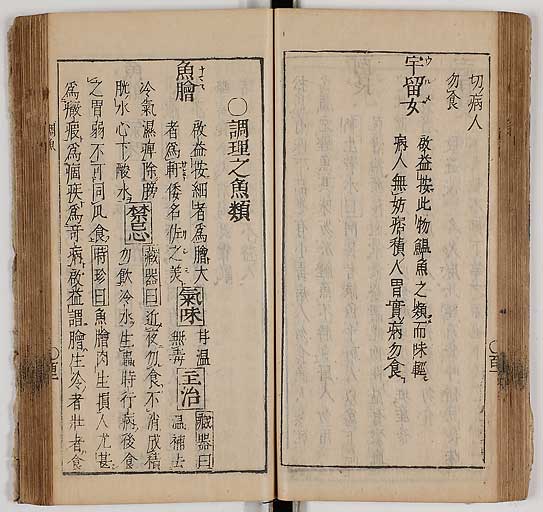 切病人
勿食
宇留女
ウルメ
啟益按此物鰮魚之類而味輕
病人無妨痞積人胃實病勿食
〇調理之魚類
魚膾
啟益按細者為膾大
者為軒倭名 之羹 氣味 甘温 無毒 主治 藏器曰 温補去
冷氣濕痺除膀
胱水心下酸水 禁忌 藏器曰近夜勿食不消成積
勿飲冷水生蟲時行病後食
之胃弱不可同瓜食時珍曰魚膾肉生損人尤甚
為癥瘕為痼疾為奇病啟益謂膾生冷者壯者食